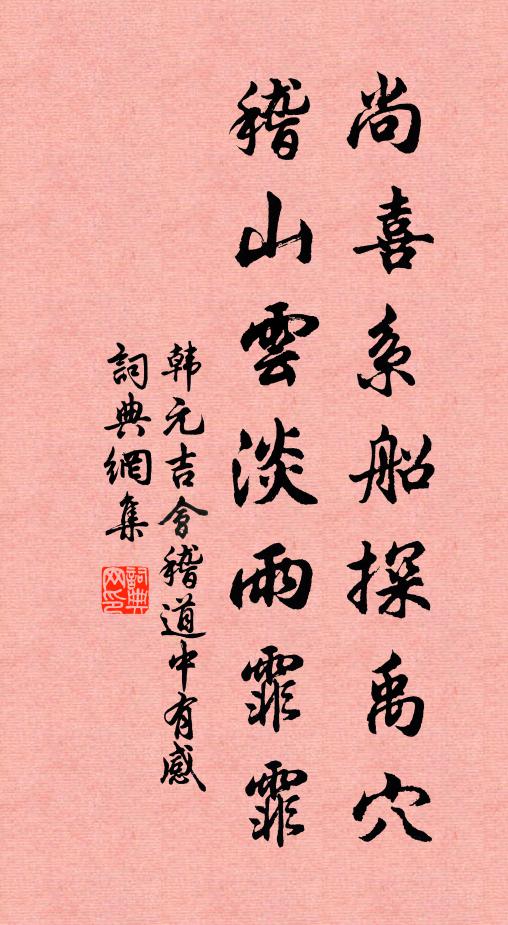 尚喜系船探禹穴
稽山雲淡雨霏霏
韩元吉會稽道中有感
詞典網集
詞典网印